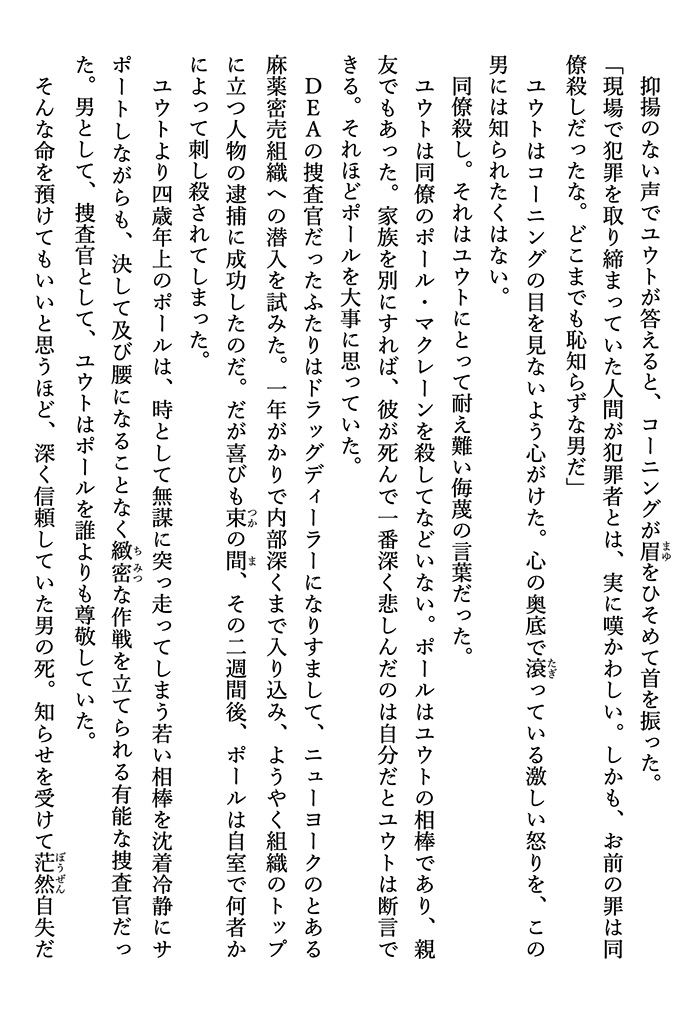 抑揚のない声でユウトが答えると、コーニングが眉をひそめて首を振った。
「現場で犯罪を取り締まっていた人間が犯罪者とは、実に嘆かわしい。しかも、お前の罪は同
僚殺しだったな。どこまでも恥知らずな男だ」
ユウトはコーニングの目を見ないよう心がけた。心の奥底で滾っている激しい怒りを、この
男には知られたくはない。
同僚殺し。それはユウトにとって耐え難い侮蔑の言葉だった。
ユウトは同僚のポール・マクレーンを殺してなどいない。ポールはユウトの相棒であり、親
友でもあった。家族を別にすれば、彼が死んで一番深く悲しんだのは自分だとユウトは断言で
きる。それほどポールを大事に思っていた。
ＤＥＡの捜査官だったふたりはドラッグディーラーになりすまして、ニューヨークのとある
麻薬密売組織への潜入を試みた。一年がかりで内部深くまで入り込み、ようやく組織のトップ
に立つ人物の逮捕に成功したのだ。だが喜びも束の間、その二週間後、ポールは自室で何者か
によって刺し殺されてしまった。
ユウトより四歳年上のポールは、時として無謀に突っ走ってしまう若い相棒を沈着冷静にサ
ポートしながらも、決して及び腰になることなく緻密な作戦を立てられる有能な捜査官だっ
た。男として、捜査官として、ユウトはポールを誰よりも尊敬していた。
そんな命を預けてもいいと思うほど、深く信頼していた男の死。知らせを受けて茫然自失だ